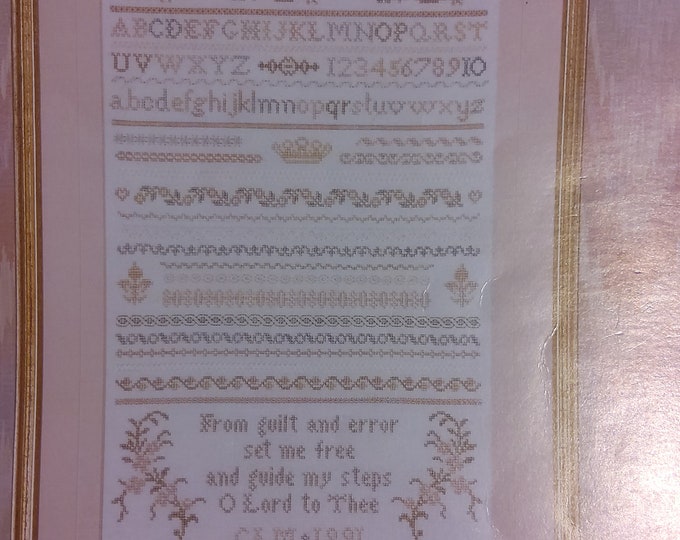 ABCDEFGHIJKLMNOPQRST
UVWXYZ 12345678910
abcdefghijklmnopqrstuvwxyz
From guilt and error
set me free
and guide my steps
O Lord to Thee
1991